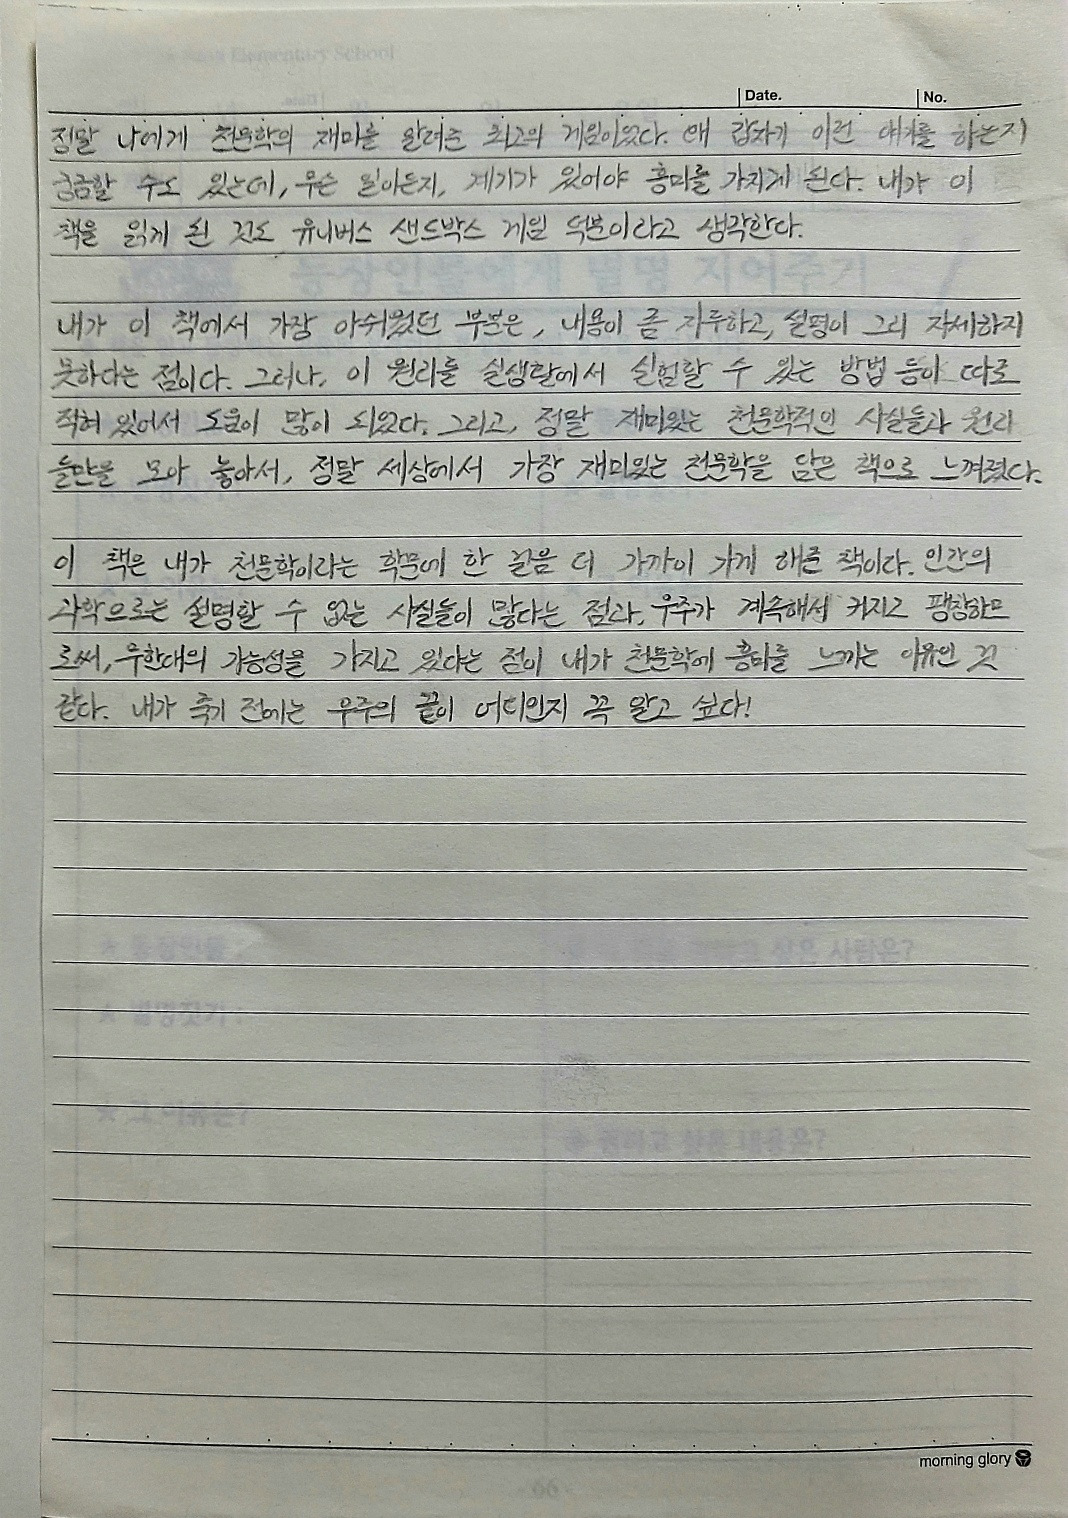 Date.
No.
정말 나에게 천문학의 재미를 알려준 최고의 게임이었다. 왜 갑자기 이런 얘기를 하는지
궁금할 수도 있는데, 무슨 일이든지, 계기가 있어야 흥미를 가지게 된다. 내가 이
책을 읽게 된 것도 유니버스 샌드박스 게임 덕분이라고 생각한다.
내가 이 책에서 가장 아쉬웠던 부분은, 내용이 좀 지루하고, 설명이 그리 자세하지
못하다는 점이다. 그러나, 이 원리를 실생활에서 실험할 수 있는 방법 등이 따로
적혀 있어서 도움이 많이 되었다. 그리고, 정말 재미있는 천문학적인 사실들과 원리
들만을 모아 놓아서, 정말 세상에서 가장 재미있는 천문학을 담은 책으로 느껴졌다.
이 책은 내가 천문학이라는 학문에 한 걸음 더 가까이 가게 해준 책이다. 인간의
과학으로는 설명할 수 없는 사실들이 많다는 점과, 우주가 계속해서 커지고 팽창하므
로써, 무한대의 가능성을 가지고 있다는 점이 내가 천문학에 흥미를 느끼는 이유인 것
같다. 내가 죽기 전에는 우주의 끝이 어디인지 꼭 알고 싶다!
morning glory